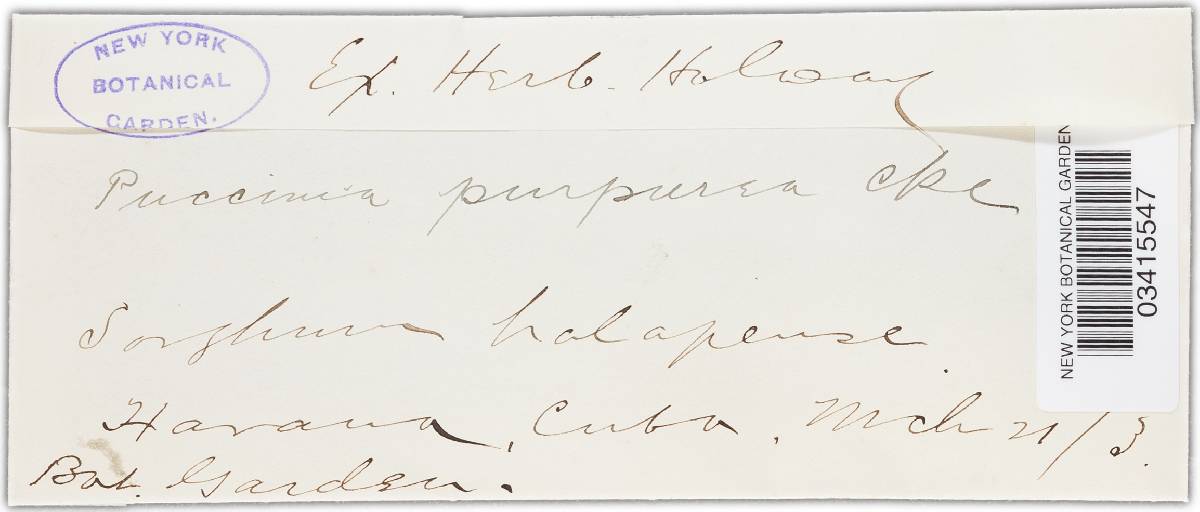 NEW YORK
BOTANICAL
GARDEN.
Ex. Herb. Holway
Puccinia purpurea Cke
Sorghum halapense.
Havana, Cuba, Mch 21/3.
Bot. Garden.
NEW YORK BOTANICAL GARDEN
03415547